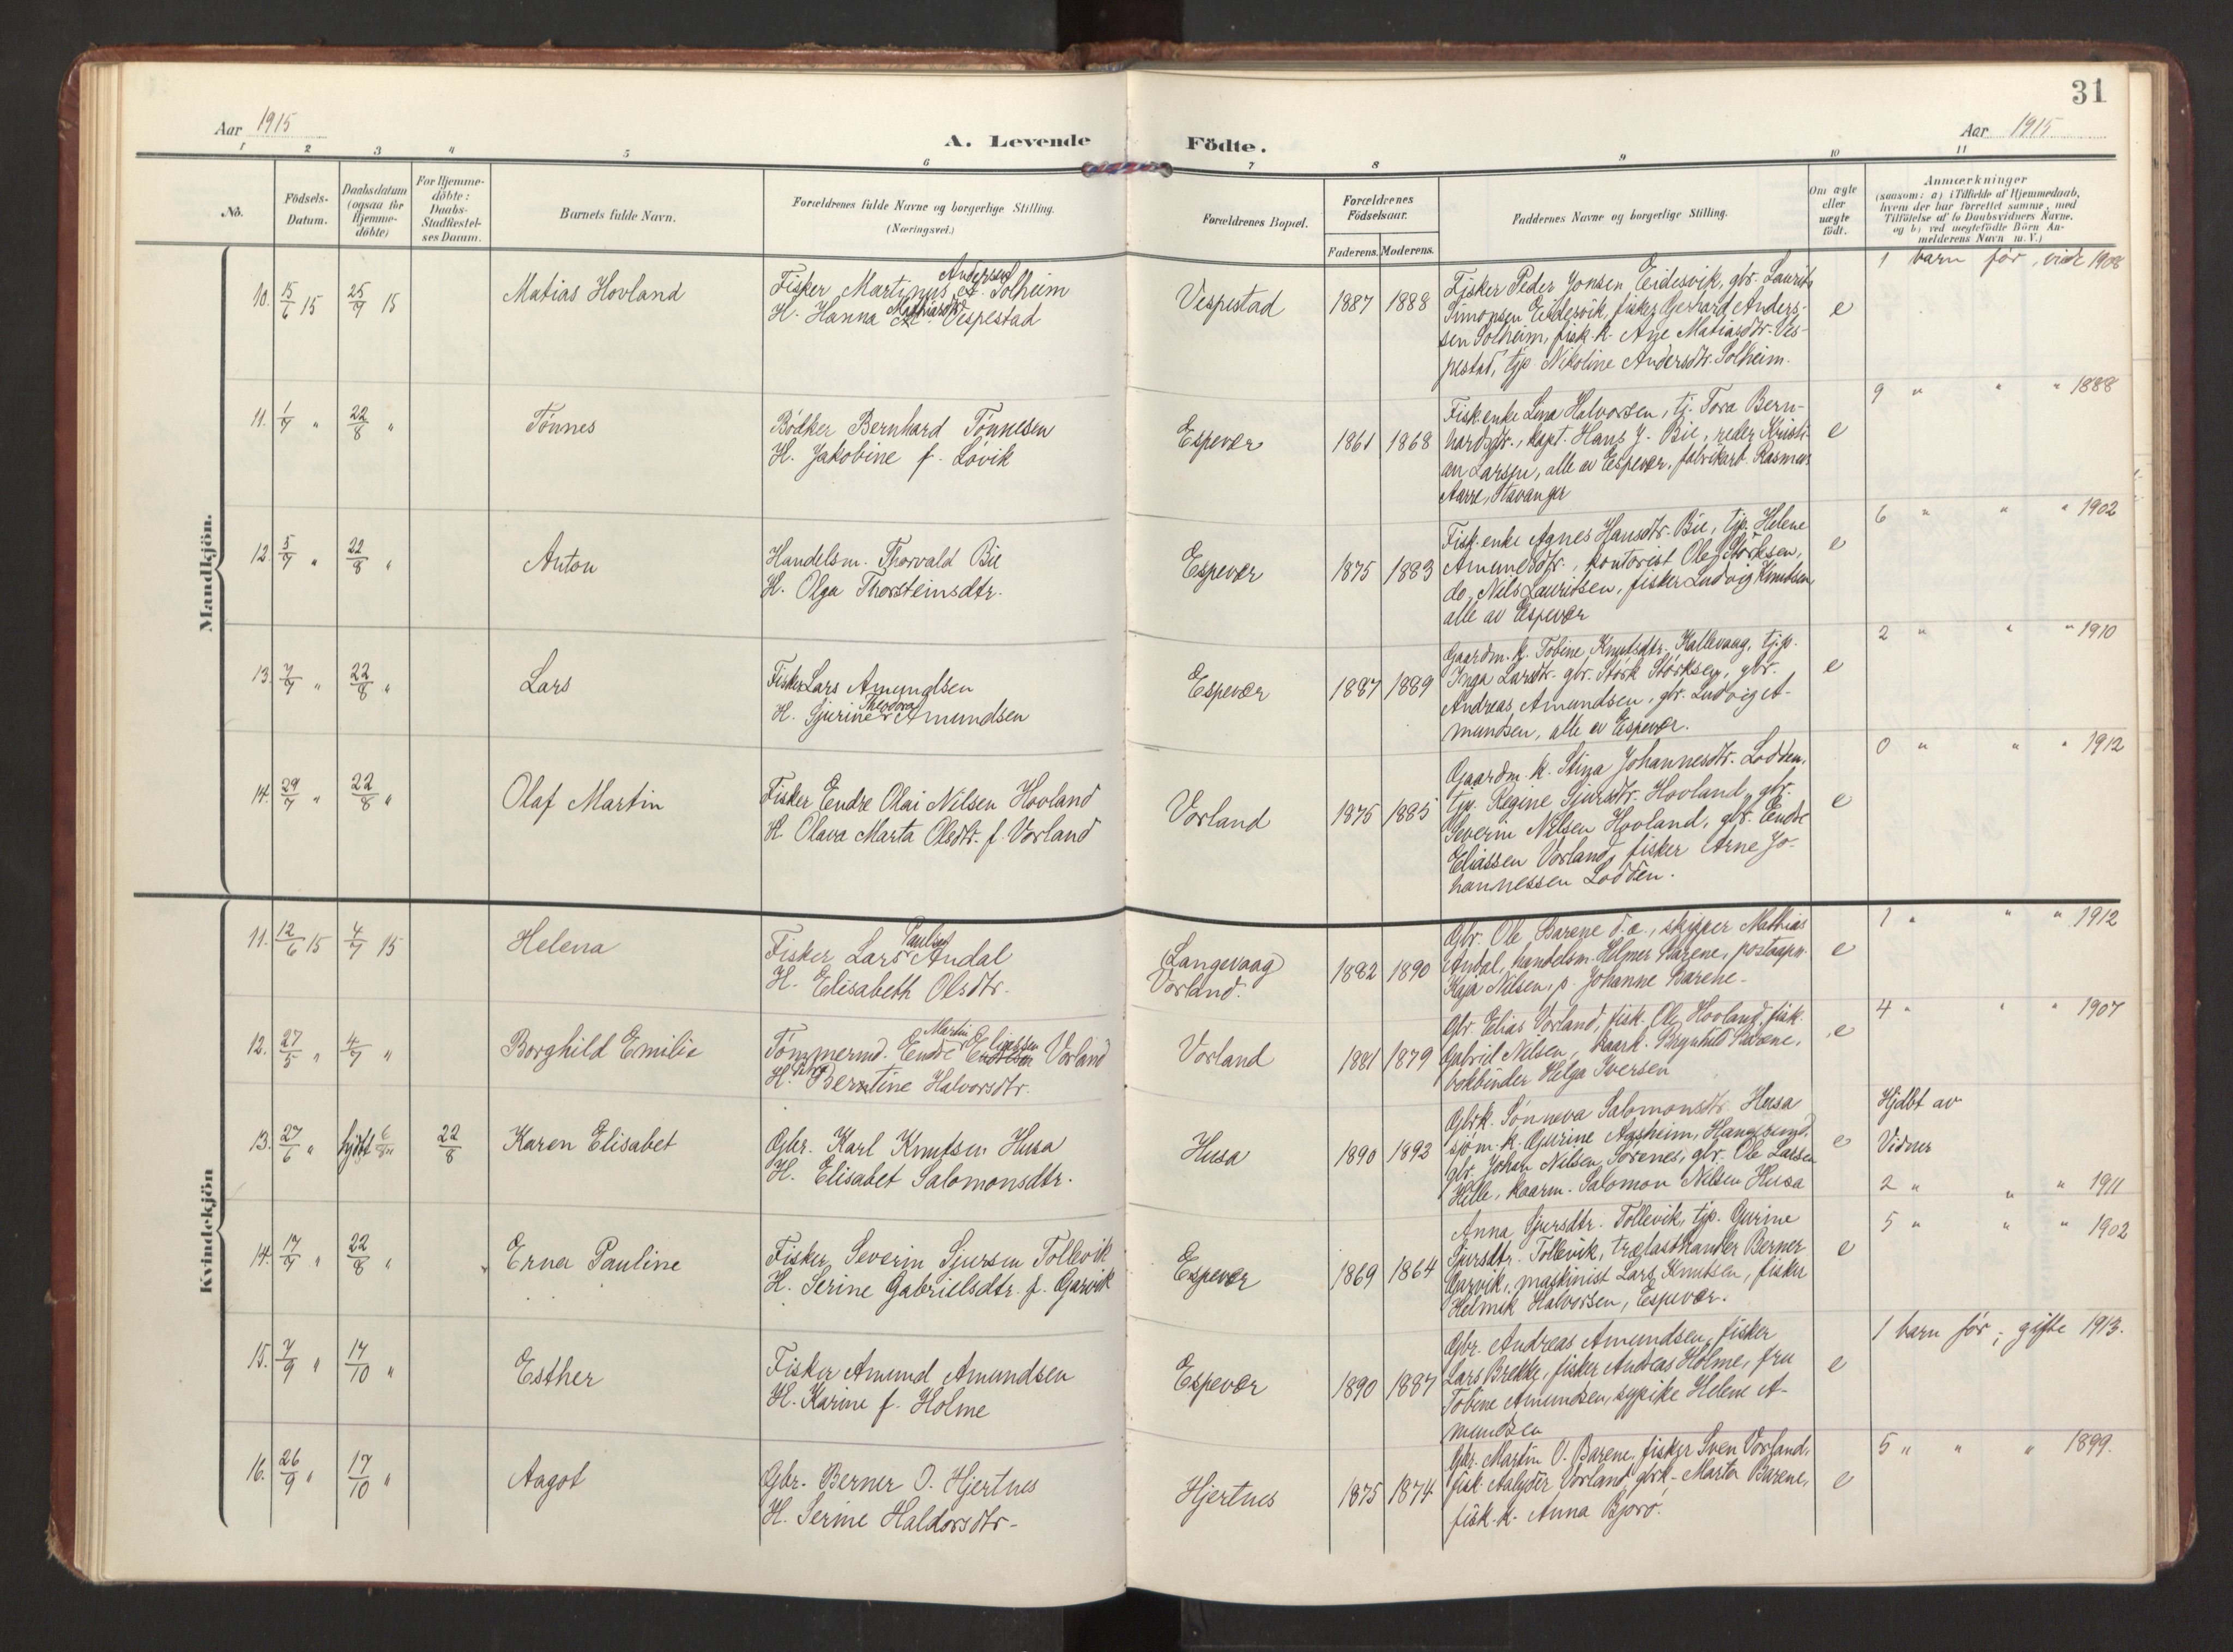 31
Aar 1915
A. Levende
Födte.
Aar 1915
1 2 3 4 5 6 7 8 9 10 11
No.
Födsels-Datum.
Daabsdatum (ogsaa for Hjemme-döbte)
For Hjemme-döbte: Daabs-Stadfæstel-ses Datum.
Barnets fulde Navn.
Forældrenes fulde Navne og borgerlige Stilling.
(Næringsvei.)
Forældrenes Bopæl.
Forældrenes Födselsaar.
Faderens. Moderens.
Faddernes Navne og borgerlige Stilling.
Om ægte eller uægte födt.
Anmærkninger
(saasom: a) i Tilfælde af Hjemmedaab, hvem der har forrettet samme, med Tilföielse af to Daabsvidners Navne, og b) ved uægtefödte Börn An-melderens Navn m. V.)
Mandkjön.
10. 15/6 15 25/7 15 Matias Hovland
Fisker Martinus Anderssen Solheim
H. Hanna Mathiasdtr Vespestad
Vespestad 1887 1888
Fisker Peder Jonsen Eidesvik, gbr. Laurits
Simonsen Eidesvik, fisker Gerhard Anders-
sen Solheim, fisk. k. Age Matiasdtr. Ves-
pestad, tjp. Nikoline Andersdtr. Solheim.
e
1 barn før, vide 1908
11. 1/7 " 22/8 " Tønnes
Bødker Bernhard Tønnesen
H. Jakobine f. Løvik
Espevær 1861 1868
Fisk.enke Lina Halvorsen, tj. Tora Bern-
hardsdtr., kapt. Hans J. Bie, reder Kristi-
an Larsen, alle av Espevær, fabrikarb. Rasmus
Aarre, Stavanger
e
9 " " " 1888
12. 5/7 " 22/8 " Anton
Handelsm. Thorvald Bie
H. Olga Thorsteinsdtr.
Espevær 1875 1883
Fisk.enke Agnes Hansdtr. Bie, tjp. Helene
Amundsdtr., kontorist Ole Størksen,
do. Nils Lauritsen, fisker Ludvig Knutsen,
alle av Espevær
e
6 " " " 1902
13. 7/7 " 22/8 " Lars
Fisker Lars Amundsen
H. Gjurine Theodora Amundsen
Espevær 1887 1889
Gaardm. k. Tobine Knutsdtr. Kallevaag, tjp.
Inga Larsdtr. gbr. Størk Størksen, gbr.
Andreas Amundsen, gbr. Ludvig A-
mundsen, alle av Espevær.
e
2 " " " 1910
14. 29/7 " 22/8 " Olaf Martin
Fisker Endre Olai Nilsen Hovland
H. Olava Marta Olsdtr. f. Vorland
Vorland 1875 1885
Gaardm. k. Stina Johannesdtr. Lodden,
tjp. Regine Sjursdtr. Hovland, gbr.
Severin Nilsen Hovland, gbr. Endre
Eliassen Vorland, fisker Arne Jo-
hannessen Lodden.
e
0 " " " 1912
Kvindekjön
11. 12/6 15 4/7 15 Helena
Fisker Lars Paulsen Andal
H. Elisabeth Olsdtr.
Langevaag
Vorland.
1882 1890
Gbr. Ole Barene d.æ., skipper Mathias
Andal, handelsm. Helmer Barene, postaapn.
Kaja Nilsen, p. Johanne Barene.
e
1 " " " 1912
12. 27/5 " 4/7 " Borghild Emilie
Tømmermd. Endre Martin Eliassen Vorland
H. Berntine Halvorsdtr.
Vorland 1881 1879
Gbr. Elias Vorland, fisk. Ole Hovland, fisk.
Gabriel Nilsen, kaark. Brynhild Barene,
bokbinder Helga Iversen
e
4 " " " 1907
13. 27/6 " hjdbt 6/8 22/8 Karen Elisabet
Gbr. Karl Knutsen Husa
H. Elisabet Salomonsdtr.
Husa 1890 1892
Gbrk. Sønneva Salomonsdtr. Husa
sjøm. k. Gurine Aasheim, Haugesund,
gbr. Johan Nilsen Sørenes, gbr. Ole Larsen
Hille, kaarm. Salomon Nilsen Husa
e
Hjdbt av
Vidner
2 " " " 1911
14. 17/7 " 22/8 " Erna Pauline
Fisker Severin Sjursen Tollevik
H. Serine Gabrielsdtr. f. Garvik
Espevær 1869 1864
Anna Sjursdtr. Tollevik, tjp. Gurine
Sjursdtr. Tollevik, trælasthandler Berner
Garvik, maskinist Lars Knutsen, fisker
Helmik Halvorsen, Espevær.
e
5 " " " 1902
15. 7/9 " 17/10 " Esther
Fisker Amund Amundsen
H. Karine f. Holme
Espevær 1890 1887
Gbr. Andreas Amundsen, fisker
Lars Brekke, fisker Andreas Holme, fru
Tobine Amundsen, sypike Helene A-
mundsen
e
1 barn før; gifte 1913.
16. 26/9 " 17/10 " Aagot
Gbr. Berner O. Hjertnes
H. Serine Haldorsdtr.
Hjertnes 1875 1874
Gbr. Martin O. Barene, fisker Sven Vorland,
fisk. Vorland, gbrk. Marta Barene,
fisk. k. Anna Bjorø.
e
5 " " " 1899.